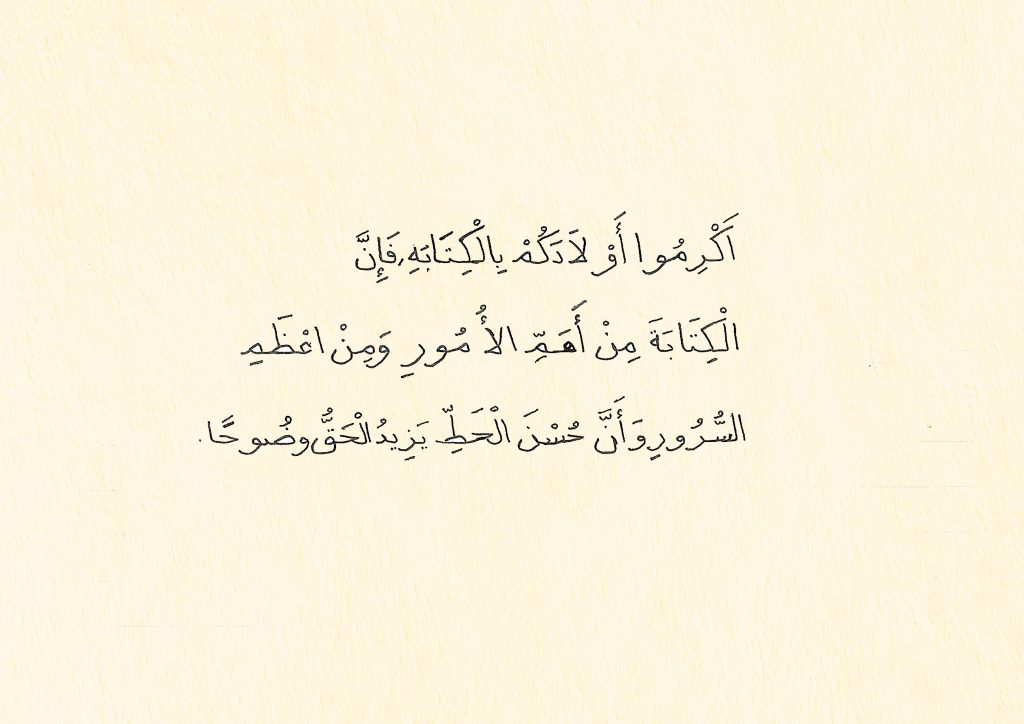 اَكْرِمُوا أَوْ لاَدَكُمْ بِالْكِتَابَهِ، فَإِنَّ
الْكِتَابَةَ مِنْ أَهَمِّ الأُمُورِ وَمِنْ اعْظَمِ
السُّرُورِ وَأَنَّ حُسْنَ الْحَطِّ يَزِيدُ الْحَقُّ وضُوحًا.